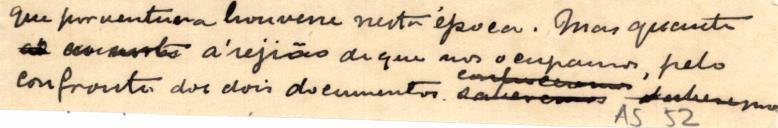 que porventura houvesse nesta época. Mas quanto
á rejião de que nos ocupamos, pelo
confronto dos dois documentos conhecemos
AS 52